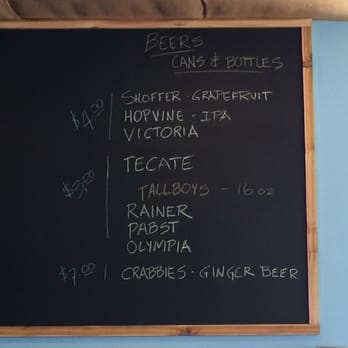 BEERS
CANS & BOTTLES
$4.00
SHOFFER - GRAPEFRUIT
HOPVINE - IPA
VICTORIA
$3.00
TECATE
TALLBOYS - 16 oz
RAINER
PABST
OLYMPIA
$7.00 CRABBIES - GINGER BEER